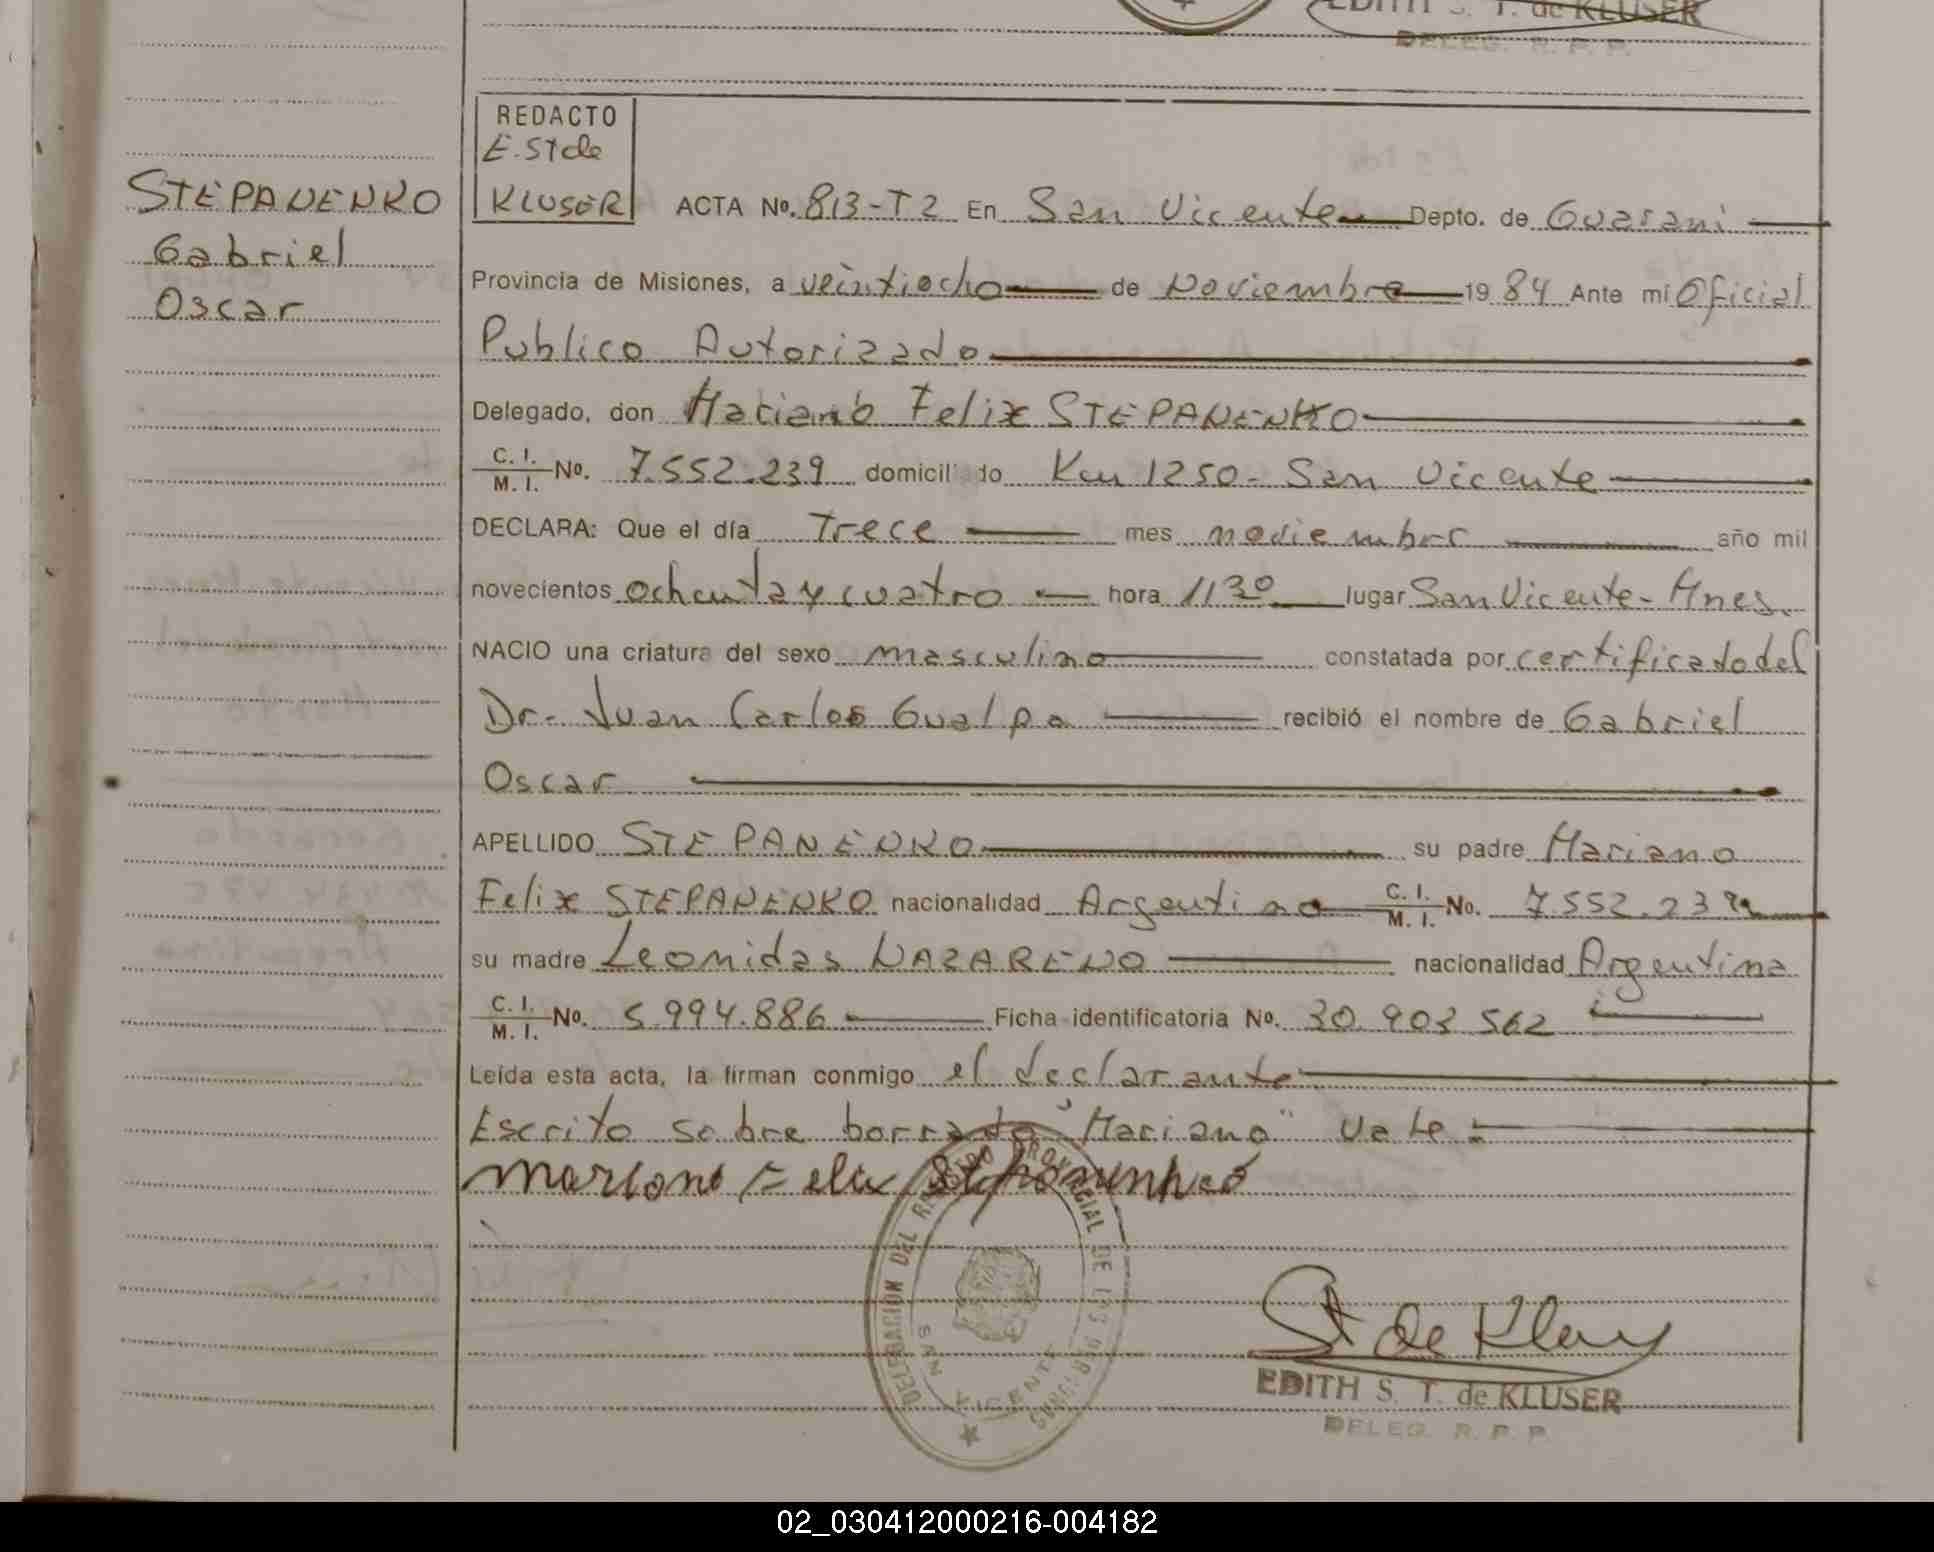 EDITH S. T. de KLUSER
DELEG. R. P. P.
STEPANENKO
Gabriel
Oscar
REDACTO
E. St de
KLUSER
ACTA No. 813-T2 En San Vicente Depto. de Guarani
Provincia de Misiones, a veintiocho de Noviembre 1984 Ante mi Oficial
Publico Autorizado
Delegado, don Mariano Felix STEPANENKO
C. I. / M. I. No. 7.552.239 domiciliado Km 1250 - San Vicente
DECLARA: Que el día Trece mes noviembre año mil
novecientos ochenta y cuatro hora 1130 lugar San Vicente - Mnes.
NACIO una criatura del sexo masculino constatada por certificado del
Dr. Juan Carlos Gualpa recibió el nombre de Gabriel
Oscar
APELLIDO STEPANENKO su padre Mariano
Felix STEPANENKO nacionalidad Argentino C. I. / M. I. No. 7.552.239
su madre Leonidas NAZARENO nacionalidad Argentina
C. I. / M. I. No. 5.994.886 Ficha identificatoria No. 30.903.562
Leída esta acta, la firman conmigo el declarante
Escrito sobre borrado "Mariano" Vale
Mariano Felix
DELEGACION DEL REGISTRO PROVINCIAL DE LAS PERSONAS
SAN VICENTE
St de
EDITH S. T. de KLUSER
DELEG. R. P. P.
02_030412000216-004182